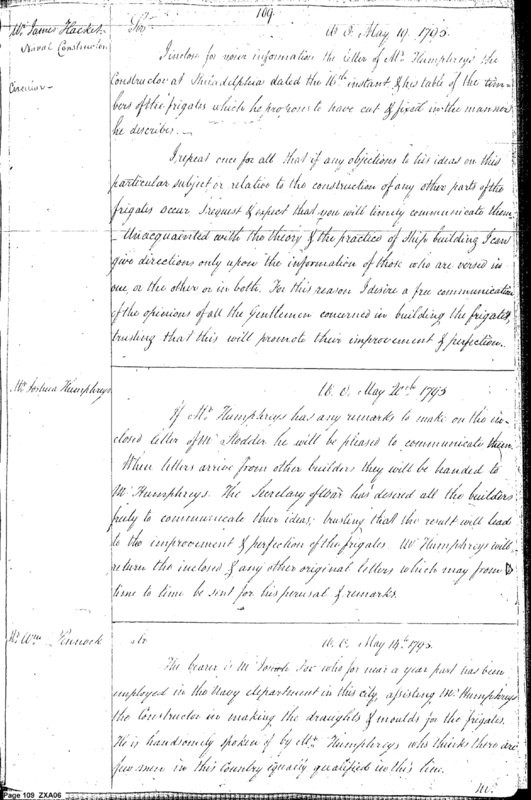 109.
Mr. James Hacket
Naval Constructor
Circular -
Sir. W. O. May 19. 1795.
I inclose for your information the letter of Mr. Humphreys the
Constructor at Philadelphia dated the instant, & his table of the tim-
bers of the frigates which he proposes to have cut & fixed in the manner
he describes. -
I repeat once for all that if any objections to his ideas on this
particular subject or relative to the construction of any other parts of the
frigates occur I request & expect that you will timely communicate them
- Unacquainted with the theory & the practice of Ship building I can
give directions only upon the information of those who are versed in
one, or the other or in both. For this reason I desire a free communication
of the opinions of all the Gentlemen concerned in building the frigates,
trusting that this will promote their improvement & perfection.
Mr. Joshua Humphreys
W. O. May 20th 1795
If Mr. Humphreys has any remarks to make on the in-
closed letter of Mr Stodder he will be pleased to communicate them.
When letters arrive from other builders they will be handed to
Mr Humphreys. The Secretary of War has desired all the builders
freely to communicate their ideas; trusting that the result will lead
to the improvement & perfection of the frigates. Mr Humphreys will
return the inclosed & any other original letters which may from
time to time be sent for his perusal & remarks.
Mr. Wm Pennock
Sir W. O. May 14th 1795.
The bearer is Mr Josiah Fox who for near a year past has been
employed in the Navy department in this city, assisting Mr. Humphreys
the Constructor in making the draughts & moulds for the frigates.
He is handsomely spoken of by Mr. Humphreys who thinks there are
few men in this Country equally qualified in this line.
Page 109 ZXA06